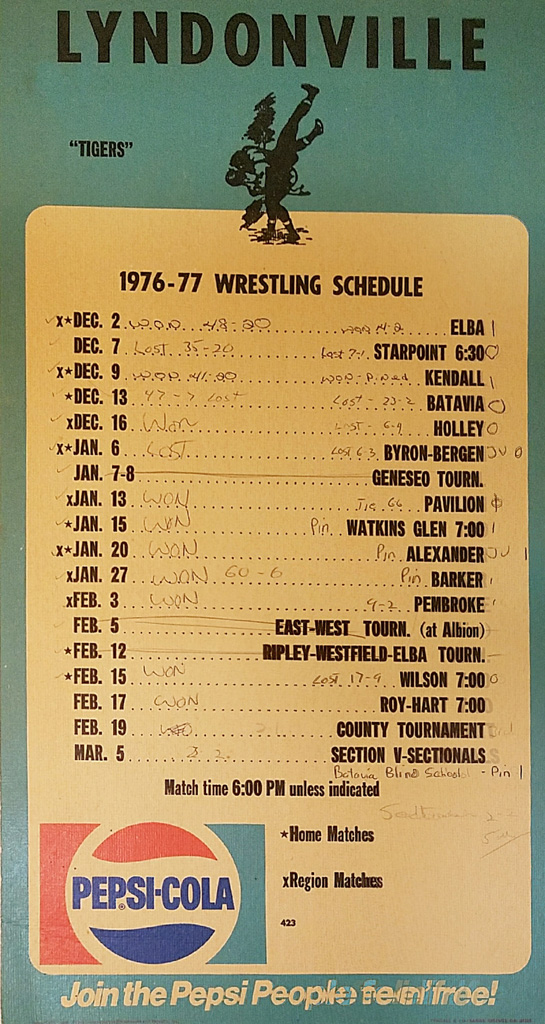 LYNDONVILLE
"TIGERS"
1976-77 WRESTLING SCHEDULE
x★DEC. 2 WON 48-20 ELBA 1
DEC. 7 LOST 35-20 Lost 7-1 STARPOINT 6:30 0
x★DEC. 9 WON KENDALL 1
★DEC. 13 47-7 Lost Lost - 23-2 BATAVIA 0
xDEC. 16 WON LOST - 6-9 HOLLEY 0
x★JAN. 6 LOST LOST 6-3 BYRON-BERGEN JV 0
JAN. 7-8 GENESEO TOURN.
xJAN. 13 WON Tie 66 PAVILION
★JAN. 15 WON Pin WATKINS GLEN 7:00 1
x★JAN. 20 WON Pin ALEXANDER JV 1
xJAN. 27 WON 60-6 Pin BARKER 1
xFEB. 3 WON 9-2 PEMBROKE 1
FEB. 5 EAST-WEST TOURN. (at Albion)
★FEB. 12 RIPLEY-WESTFIELD-ELBA TOURN.
★FEB. 15 WON Lost 17-9 WILSON 7:00 0
FEB. 17 WON ROY-HART 7:00
FEB. 19 COUNTY TOURNAMENT
MAR. 5 SECTION V-SECTIONALS
Batavia Blind School - Pin 1
Match time 6:00 PM unless indicated
★Home Matches
xRegion Matches
PEPSI-COLA
423
Join the Pepsi People feelin' free!